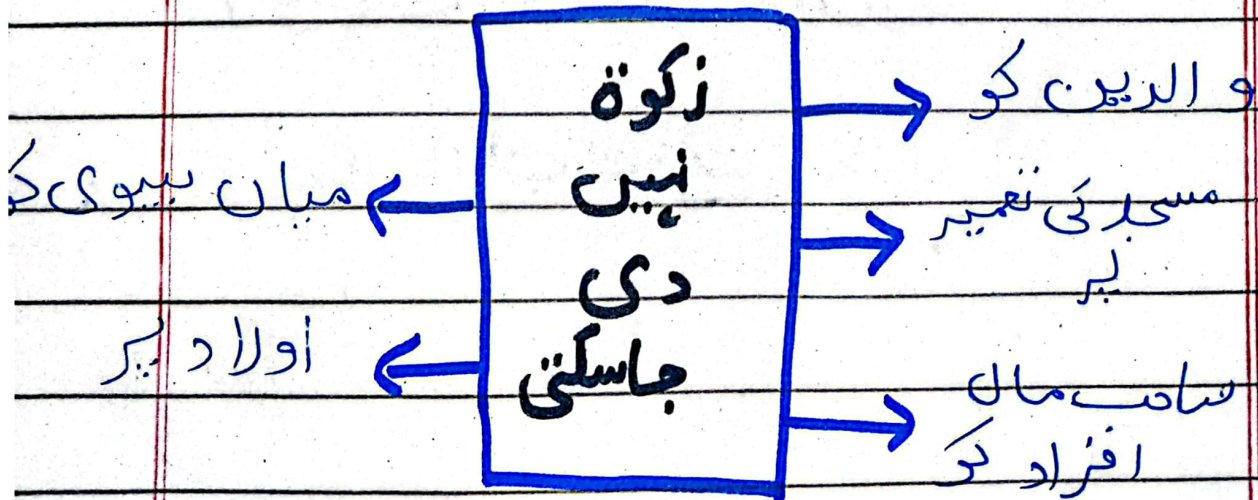 زکوة
نہیں
دی
جاسکتی
والدین کو
مسجد کی تعمیر
پر
صاحب مال
افراد کو
میاں بیوی کو
اولاد پر